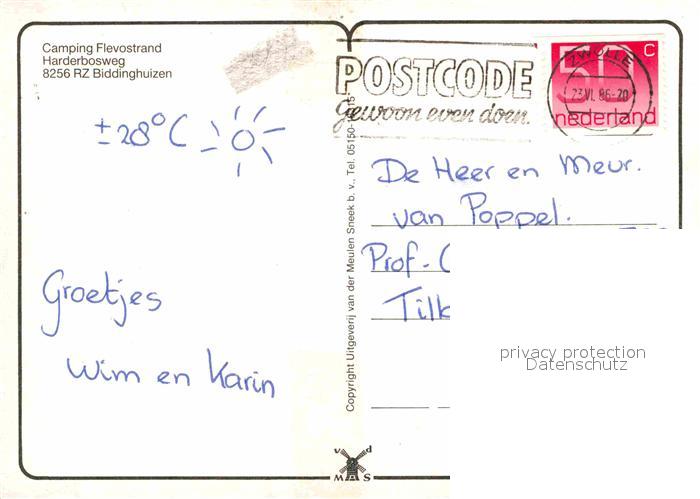 Camping Flevostrand
Harderbosweg
8256 RZ Biddinghuizen
± 28°C
Groetjes
Wim en Karin
Copyright Uitgeverij van der Meulen Sneek b. v., Tel. 05150-
v d
MAS
POSTCODE
Gewoon even doen.
ZWOLLE
23.VI.86-20
50 c
nederland
De Heer en Meur.
van Poppel.
Prof.
privacy protection
Datenschutz